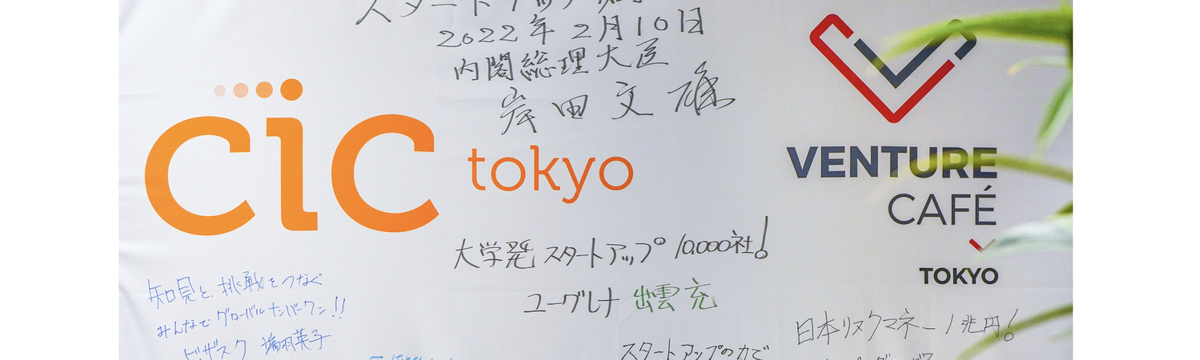 スタートアップ
2022年2月10日
内閣総理大臣
岸田文雄
cic tokyo
VENTURE
CAFÉ
TOKYO
大学発スタートアップ 10,000社!
ユーグレナ 出雲充
知見と、挑戦をつなぐ
みんなでグローバルナンバーワン!!
ビザスク 端羽英子
日本リスクマネー1兆円!
スタートアップの力で